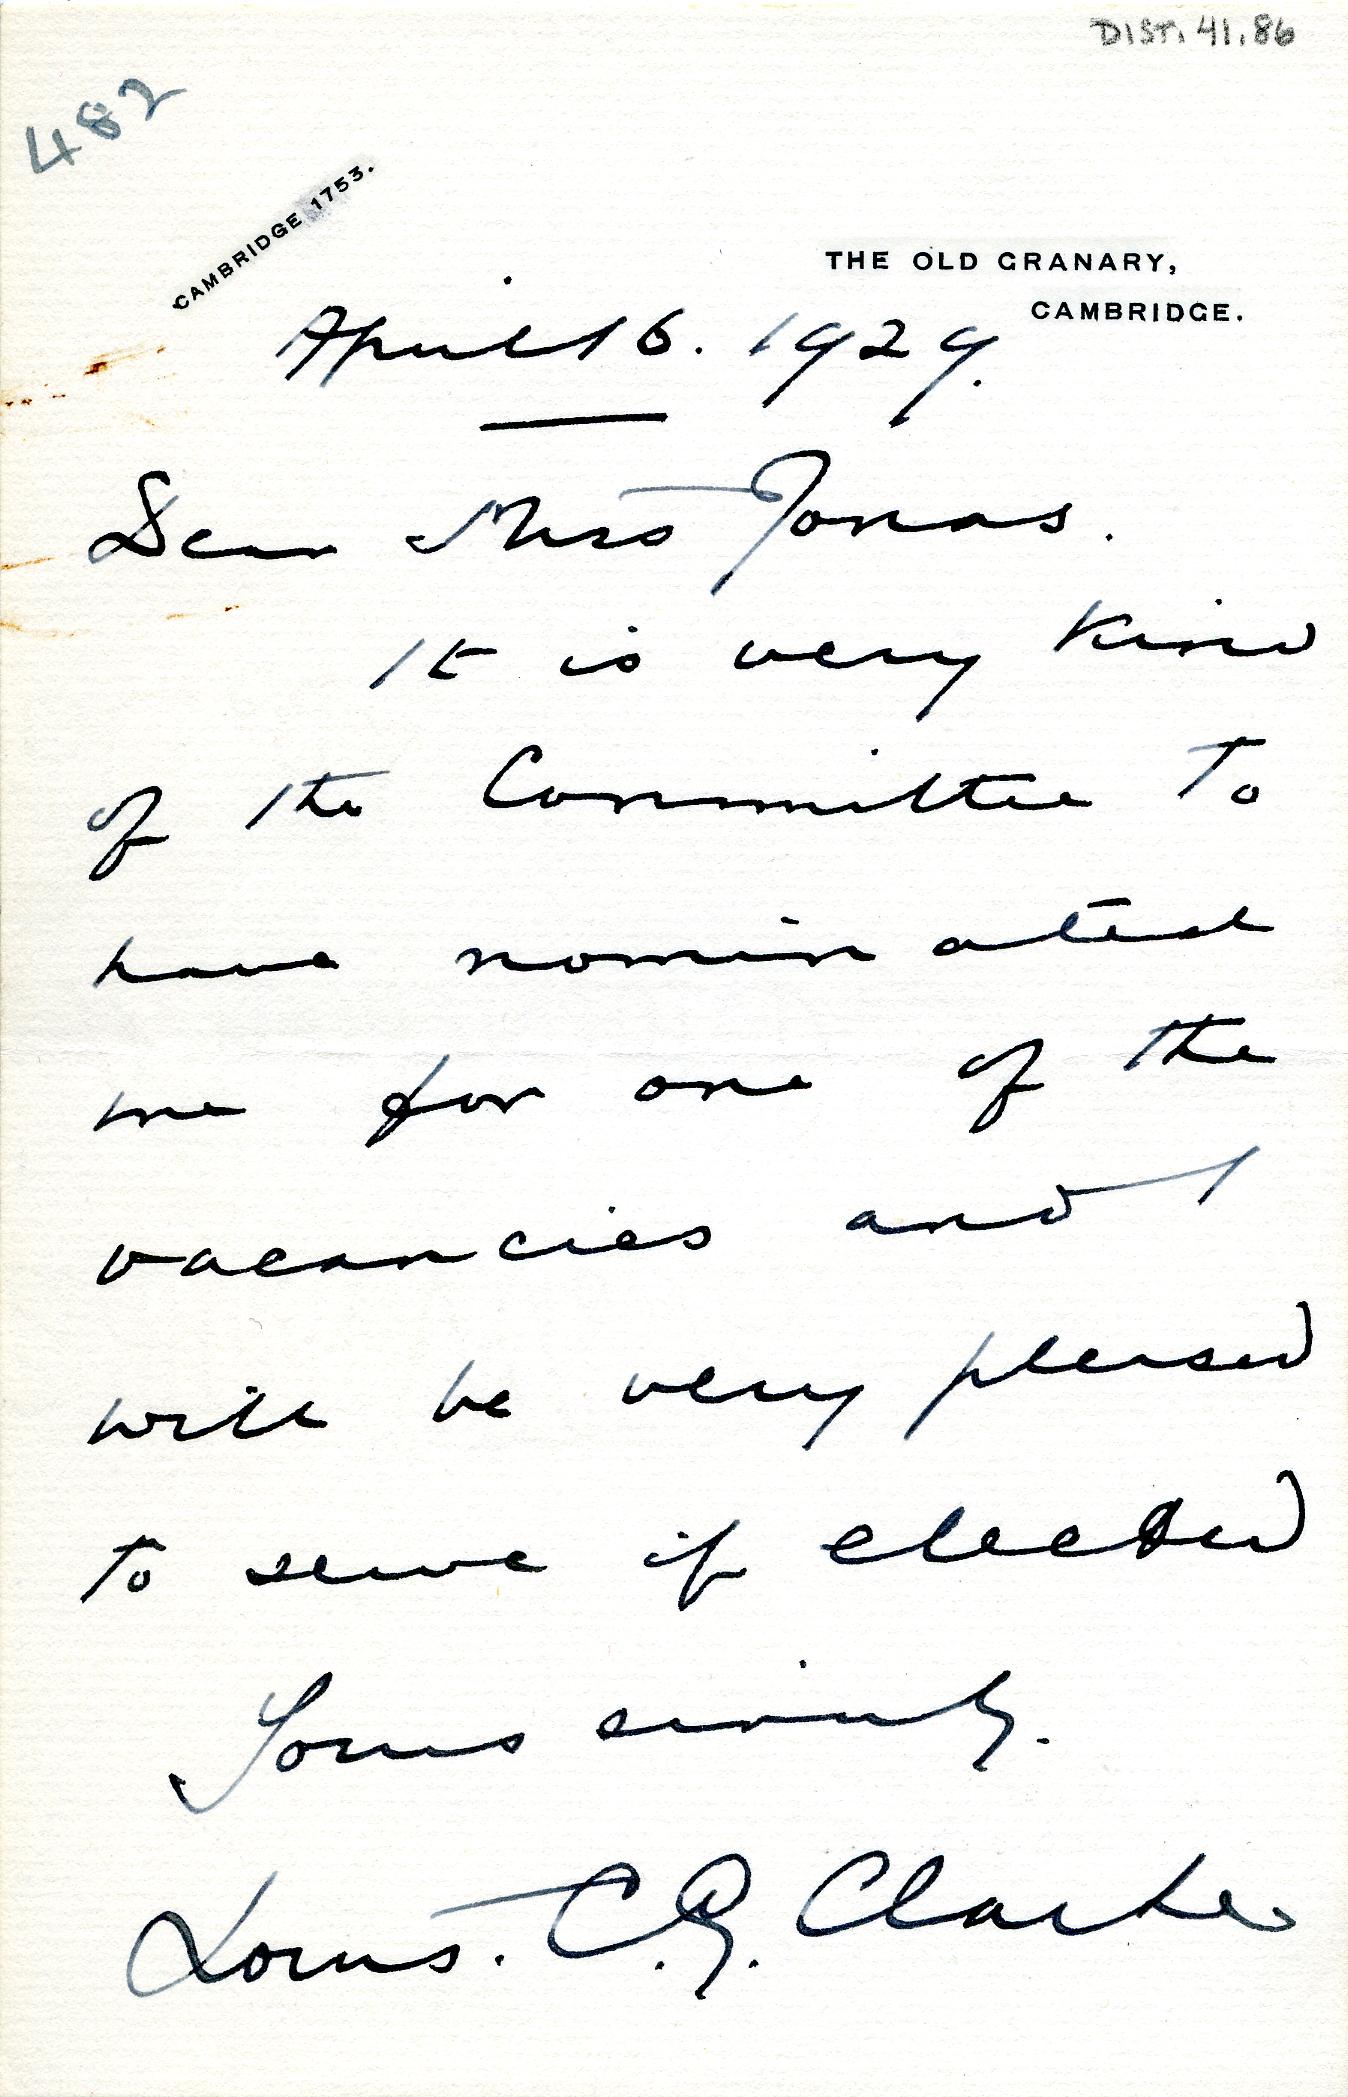 DIST. 41.86
482
CAMBRIDGE 1753.
THE OLD GRANARY,
CAMBRIDGE.
April 16. 1929.
Dear Miss Jonas.
It is very kind
of the Committee to
have nominated
me for one of the
vacancies and I
will be very pleased
to serve if elected
Yours sincerely.
Louis. C. G. Clarke